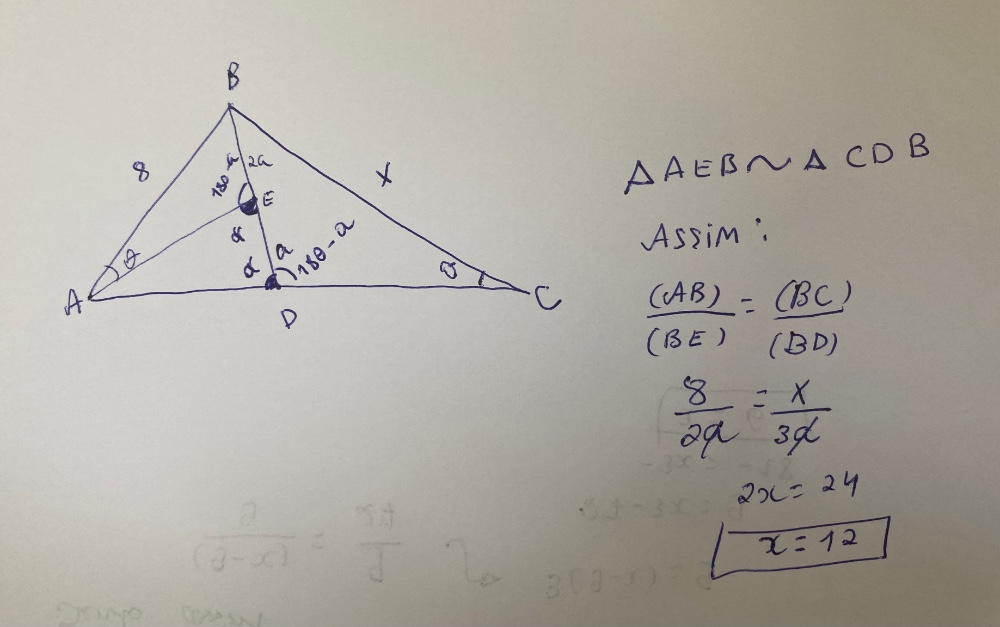 B
8
180-a
2a
x
E
θ
α
a
α
180-a
θ
A
D
C
Δ AEB ~ Δ CDB
ASSIM:
(AB) = (BC)
(BE) (BD)
8 = x
2a 3a
2x = 24
x = 12